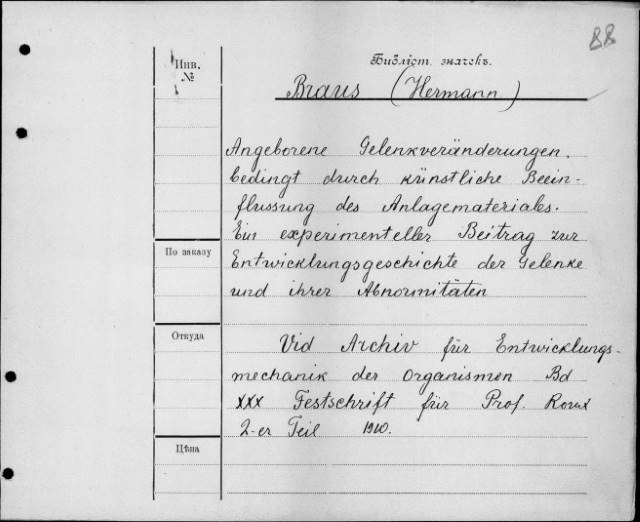 88
Инв.
№
Библіот. значекъ.
Braus (Hermann)
Angeborene Gelenkveränderungen,
bedingt durch künstliche Beein-
flussung des Anlagemateriales.
Ein experimenteller Beitrag zur
По заказу
Entwicklungsgeschichte der Gelenke
und ihrer Abnormitäten
Откуда
Vid Archiv für Entwicklungs-
mechanik der Organismen Bd
XXX Festschrift für Prof. Roux
2-er Teil 1910.
Цѣна